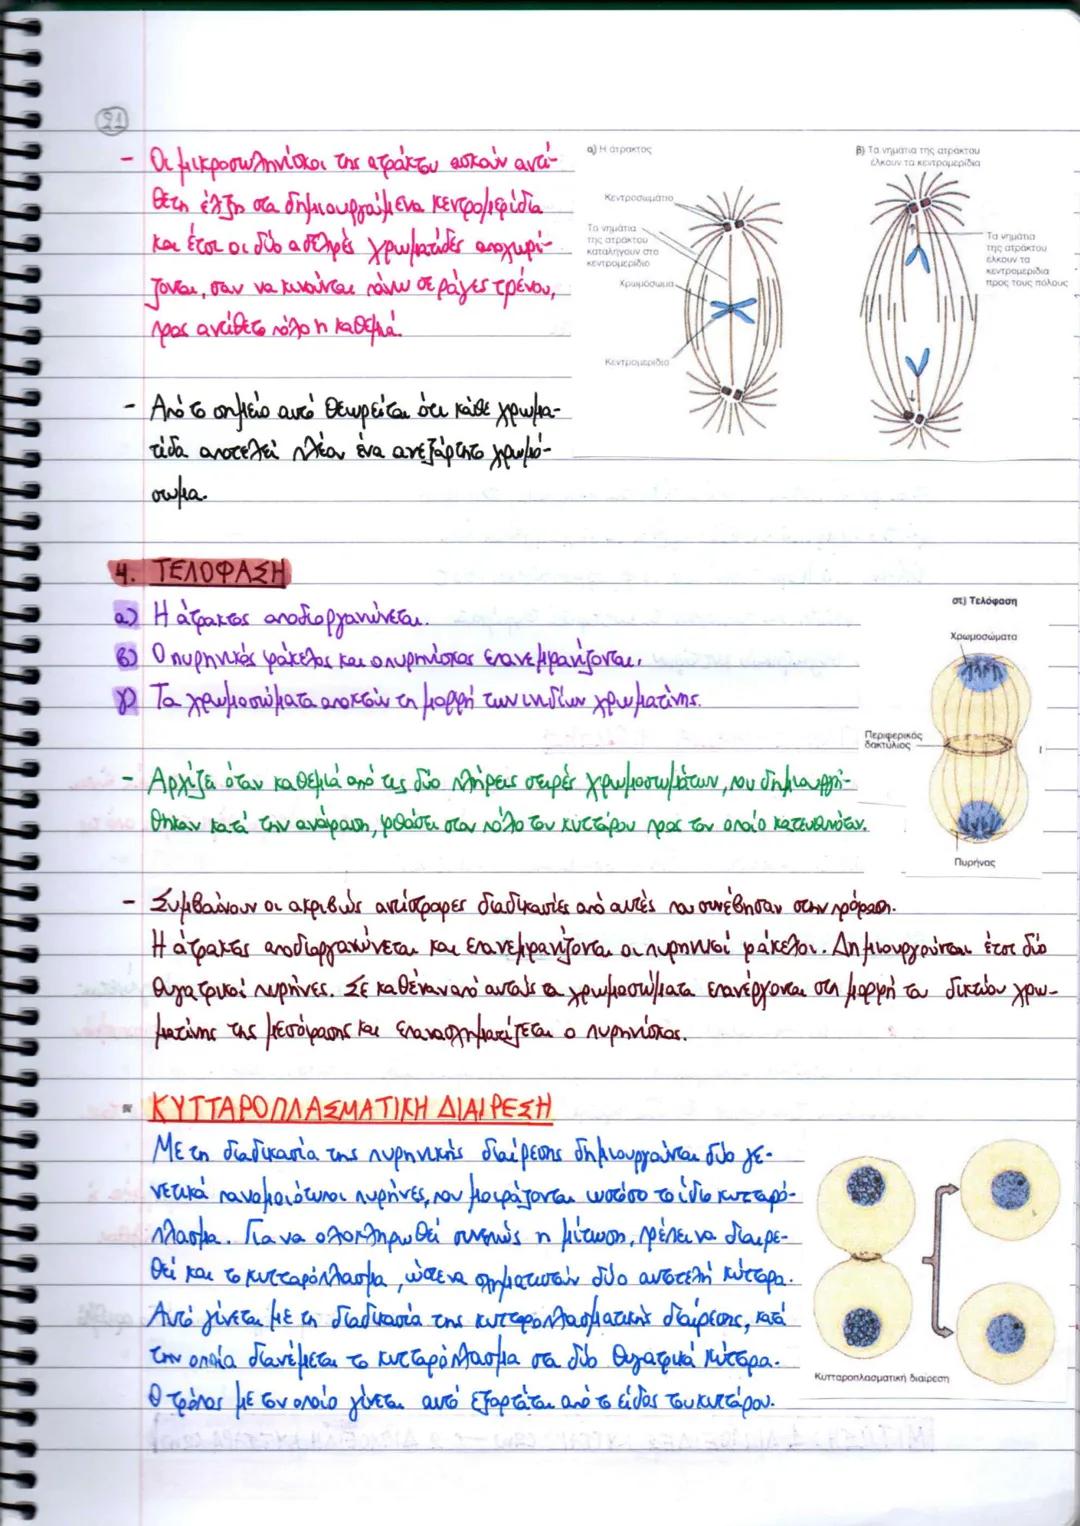 21
- Οι μικροσωληνίσκοι της ατράκτου ασκούν αντί-
θετη έλξη στα δημιουργούμενα κεντρομερίδια
και έτσι οι δύο αδελφές χρωματίδες αποχωρί-
ζονται, σαν να κινούνται πάνω σε ράγες τρένου,
προς αντίθετο πόλο η καθεμιά.
- Από το σημείο αυτό θεωρείται ότι κάθε χρωμα-
τίδα αποτελεί πλέον ένα ανεξάρτητο χρωμό-
σωμα.
α) Η άτρακτος
Κεντροσωμάτιο
Τα νημάτια
της ατράκτου
καταλήγουν στο
κεντρομερίδιο
Χρωμόσωμα
Κεντρομερίδιο
β) Τα νημάτια της ατράκτου
έλκουν τα κεντρομερίδια
Τα νημάτια
της ατράκτου
έλκουν τα
κεντρομερίδια
προς τους πόλους
4. ΤΕΛΟΦΑΣΗ
α) Η άτρακτος αποδιοργανώνεται.
β) Ο πυρηνικός φάκελος και ο πυρηνίσκος επανεμφανίζονται.
γ) Τα χρωμοσώματα αποκτούν τη μορφή των ινιδίων χρωματίνης.
- Αρχίζει όταν καθεμιά από τις δύο πλήρεις σειρές χρωμοσωμάτων, που δημιουργή-
θηκαν κατά την ανάφαση, φθάσει στον πόλο του κυττάρου προς τον οποίο κατευθυνόταν.
στ) Τελόφαση
Χρωμοσώματα
Περιφερικός
δακτύλιος
Πυρήνας
- Συμβαίνουν οι ακριβώς αντίστροφες διαδικασίες από αυτές που συνέβησαν στην πρόφαση.
Η άτρακτος αποδιοργανώνεται και επανεμφανίζονται οι πυρηνικοί φάκελοι. Δημιουργούνται έτσι δύο
θυγατρικοί πυρήνες. Σε καθέναν από αυτούς τα χρωμοσώματα επανέρχονται στη μορφή του δικτύου χρω-
ματίνης της μεσόφασης και επανασχηματίζεται ο πυρηνίσκος.
ΚΥΤΤΑΡΟΠΛΑΣΜΑΤΙΚΗ ΔΙΑΙΡΕΣΗ
Με τη διαδικασία της πυρηνικής διαίρεσης δημιουργούνται δύο γε-
νετικά πανομοιότυποι πυρήνες, που μοιράζονται ωστόσο το ίδιο κυτταρό-
πλασμα. Για να ολοκληρωθεί συνεπώς η μίτωση, πρέπει να διαιρε-
θεί και το κυτταρόπλασμα, ώστε να σχηματιστούν δύο αυτοτελή κύτταρα.
Αυτό γίνεται με τη διαδικασία της κυτταροπλασματικής διαίρεσης, κατά
την οποία διανέμεται το κυτταρόπλασμα στα δύο θυγατρικά κύτταρα.
Ο τρόπος με τον οποίο γίνεται αυτό εξαρτάται από το είδος του κυττάρου.
Κυτταροπλασματική διαίρεση